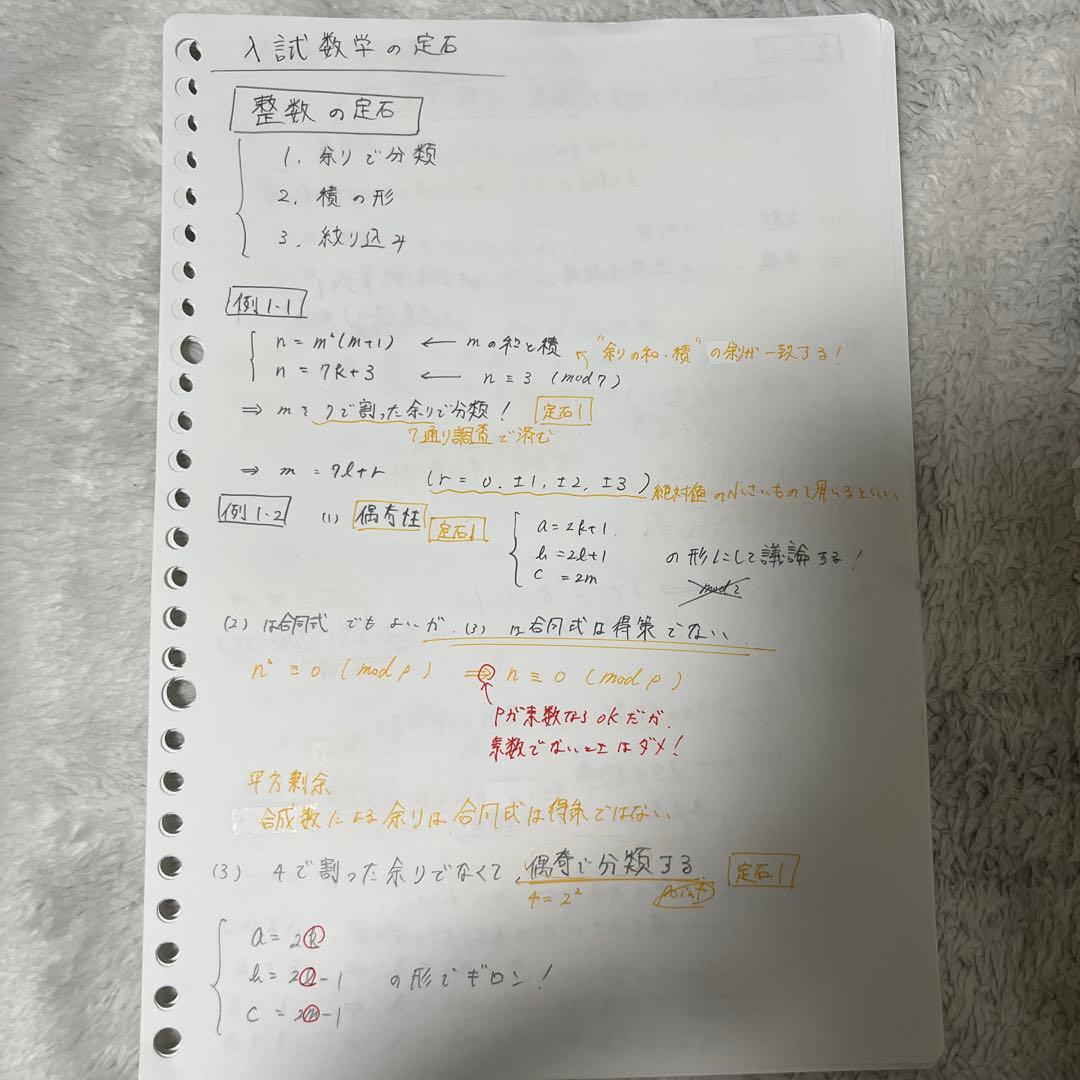 入試数学の定石
整数の定石
1. 余りで分類
2. 積の形
3. 絞り込み
例1-1
n = m²(m+1) ← mの和と積 ↖ "余りの和・積"の余りが一致する!
n = 7k+3 ← n ≡ 3 (mod 7)
⇒ mを7で割った余りで分類! 定石1
7通り調査で済む
⇒ m = 7l+r (r = 0, ±1, ±2, ±3) 絶対値の小さいものを用いるといい
例1-2 (1) 偶奇性 定石1
a = 2k+1
b = 2l+1 の形にして議論する!
c = 2m mod 2
(2) は合同式でもよいが、(3) は合同式は得策でない
n² ≡ 0 (mod p) ⇒ n ≡ 0 (mod p)
pが素数ならOKだが、
素数でないときはダメ!
平方剰余
合成数による余りは、合同式は得策ではない
(3) 4で割った余りでなくて、偶奇で分類する 定石1
4 = 2² point
a = 2k
b = 2l-1 の形でギロン!
c = 2m-1